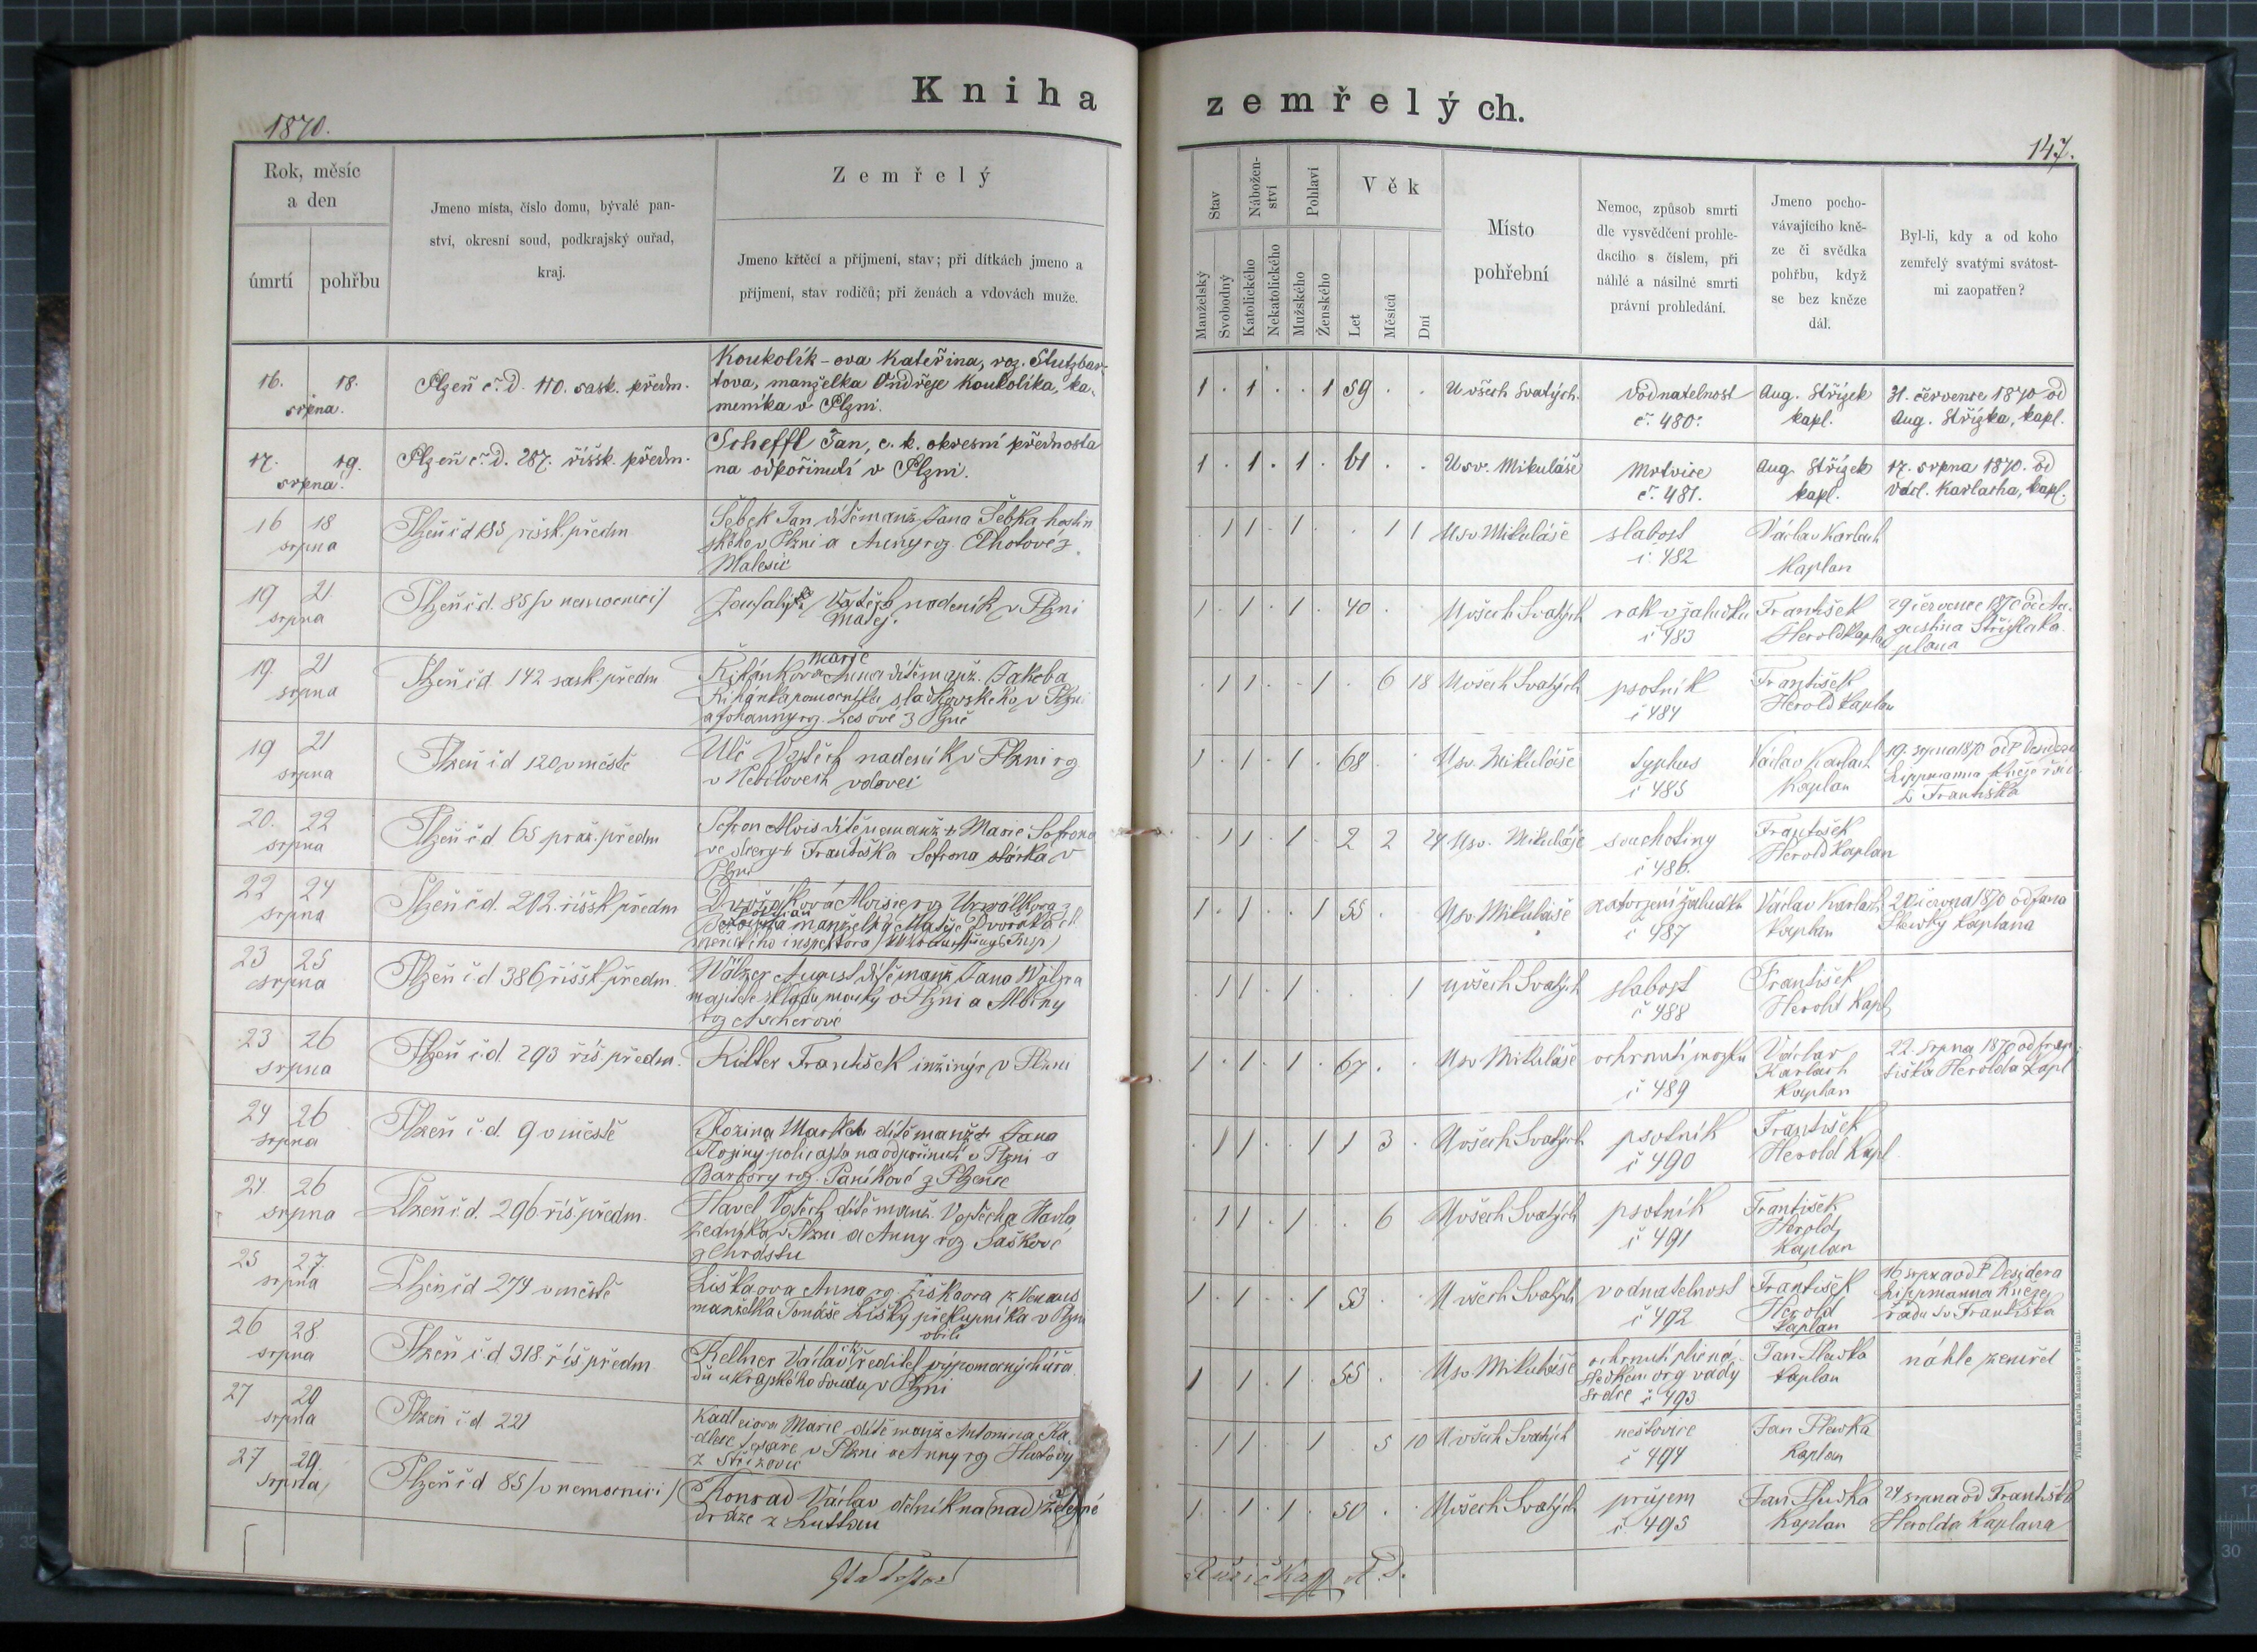 Kniha zemřelých.
1870.
147.
Rok, měsíc
a den
úmrtí
pohřbu
Jmeno místa, číslo domu, bývalé pan-
ství, okresní soud, podkrajský ouřad,
kraj.
Zemřelý
Jmeno křtěcí a příjmení, stav; při dítkách jmeno a
příjmení, stav rodičů; při ženách a vdovách muže.
Stav
Manželský
Svobodný
Nábožen-
ství
Katolického
Nekatolického
Pohlaví
Mužského
Ženského
Věk
Let
Měsíců
Dní
Místo
pohřební
Nemoc, způsob smrti
dle vysvědčení prohle-
dacího s číslem, při
náhlé a násilné smrti
právní prohledání.
Jmeno pocho-
vávajícího kně-
ze či svědka
pohřbu, když
se bez kněze
dál.
Byl-li, kdy a od koho
zemřelý svatými svátost-
mi zaopatřen?
16. 18.
srpna.
Plzeň č. d. 110. sask. předm.
Koukolík-ova Kateřina, roz. Stutzbar-
tova, manželka Ondřeje Koukolíka, ka-
meníka v Plzni.
1 . 1 . . 1 59 . .
U všech Svatých.
Vodnatelnost
č. 480.
Aug. Střízek
kapl.
31. července 1870 od
Aug. Střízka, kapl.
17. 19.
srpna.
Plzeň č. d. 287. říšsk. předm.
Scheffl Jan, c. k. okresní přednosta
na odpočinutí v Plzni.
1 . 1 . 1 . 61 . .
U sv. Mikuláše
Mrtvice
č. 481.
Aug. Střízek
kapl.
17. srpna 1870. od
Václ. Karlacha, kapl.
16 18
srpna
Plzeň č d říšsk. předm
Šebek Jan dítě manž. Jana Šebka hostin
ského v Plzni a Anny roz. z
Malesic
. 1 1 . 1 . . 1 1
U sv Mikuláše
slabost
č. 482
Václav Karlach
Kaplan
19 21
srpna
Plzeň č. d. 85 /v nemocnici/
nadeník v Plzni
Matěj.
1 . 1 . 1 . 40 .
U všech Svatých
rak v žaludku
č 483
František
Herold Kaplan
29 července 1870 od Au-
gustina Střízka ka
plana
19. 21
srpna
Plzeň č d. 142 sask. předm
Marie
dítě manž. Jakoba
sladkovského v Plzni
a Johanny roz.
. 1 1 . . 1 . 6 18
U všech Svatých
psotník
č 484
František
Herold Kaplan
19 21
srpna
Plzeň č d 120 v městě
Ulč Vojtěch nadeník v Plzni roz
v vdovec
1 . 1 . 1 . 68 . .
U sv. Mikuláše
Typhus
č 485
Václav Karlach
Kaplan
19. srpna 1870 od P
Lippmanna Kněze řád
S Františka
20. 22
srpna
Plzeň č. d 65 praž. předm
Sofron Alois dítě nemanž. Marie Sofrono
ve dcery Františka Sofrona v
Plzni
. 1 1 . 1 . 2 2 24
U sv. Mikuláše
souchotiny
č 486.
František
Herold Kaplan
22 24
srpna
Plzeň č d. 202. říšsk předm
Dvořáková Aloisie roz
manželka Matěje Dvořáka
inspektora
1 . 1 . . 1 55 .
U sv Mikuláše
žaludku
č 487
Václav Karlach
Kaplan
od Jana
Plewky Kaplana
23 25
srpna
Plzeň č d 386 říšsk předm.
Wälzer August dítě manž Jana Wälzra
majitele skladu mouky v Plzni a Albiny
roz Ascherové
. 1 1 . 1 . . . 1
U všech Svatých
slabost
č 488
František
Herold Kapl
23 26
srpna
Plzeň č. d. 293 říš. předm.
Ritter František inžinýr v Plzni
1 . 1 . 1 . 67 . .
U sv Mikuláše
ochrnutí mozku
č 489
Václav
Karlach
Kaplan
22. srpna 1870 od Fran-
tiška Herolda Kapl
24 26
srpna
Plzeň č. d. 9 v městě
Rozina Marketa dítě manž. Jana
Roziny policajta na odpočinutí v Plzni a
Barbory roz. Paníkové z Plzence
. 1 1 . . 1 1 3 .
U všech Svatých
psotník
č 490
František
Herold Kapl
24. 26
srpna
Plzeň č. d. 296 říš. předm.
Havel Vojtěch dítě manž. Vojtěcha Havla
zedníka v Plzni a Anny roz Šaškové
z Chrástu
. 1 1 . 1 . . 6
U všech Svatých
psotník
č 491
František
Herold
Kaplan
25 27.
srpna
Plzeň č d 274 v městě
Liškaova Anna roz.
manželka Tomáše Lišky překupníka v Plzni
obilí
1 . 1 . . 1 53 . .
U všech Svatých
vodnatelnost
č 492
František
Herold
Kaplan
16 srpna od P Desidera
Lippmanna Kněze
řádu sv. Františka
26 28
srpna
Plzeň č. d 318. říš předm
Kellner Václav ředitel výpomocných úřa
dů u krajského soudu v Plzni
1 . 1 . 1 . 55 . .
U sv. Mikuláše
ochrnutí plic ná-
sledkem org vady
srdce č 493
Jan Plewka
Kaplan
náhle zemřel
27 29
srpna
Plzeň č. d. 221
Marie dítě manž Antonína Ka
dlece v Plzni a Anny roz
z Střížovic
. 1 1 . 1 . 5 10
U všech Svatých
neštovice
č 494
Jan Plewka
Kaplan
27 29.
srpna
Plzeň č d 85 /v nemocnici/
Konrad Václav dělník na (nad) železné
dráze z
1 . 1 . 1 . 50 . .
U všech Svatých
průjem
č. 495
Jan Plewka
Kaplan
24 srpna od Františka
Herolda Kaplana
Tiskem Karla Maasche v Plzni.